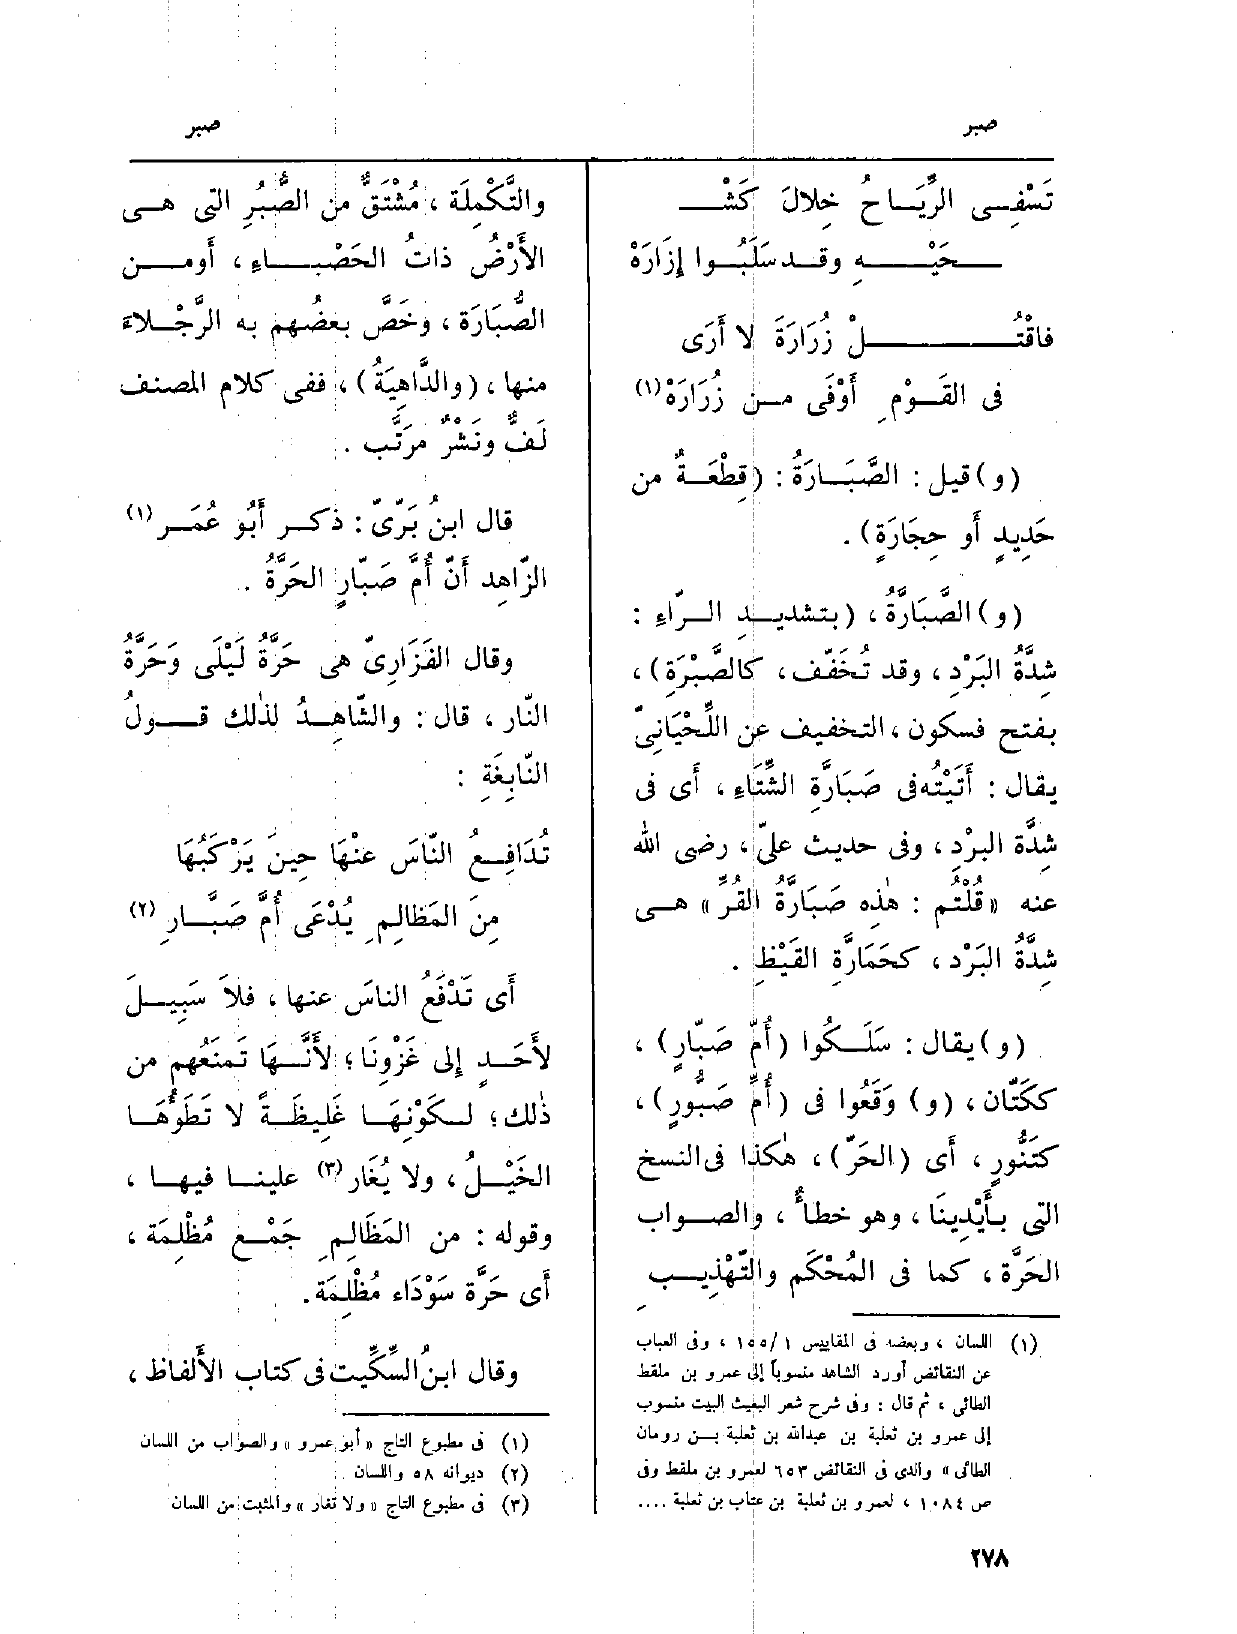 صبر
صبر
تَسْفِــى الرِّيَــاحُ خِلالَ كَشْــ
ــحَيْــــهِ وقــد سَلَبُــوا إزَارَهْ
فاقْتُــــــــلْ زُرَارَةَ لا أَرَى
فى القَــوْمِ أَوْفَى مــن زُرَارَهْ (١)
(و) قيل : الصَّبَــارَةُ : (قِطْعَــةٌ من
حَدِيدٍ أو حِجَارَةٍ) .
(و) الصَّبَارَّةُ ، (بتشديــد الــرّاءِ :
شِدَّةُ البَرْدِ ، وقد تُخَفَّف ، كالصَّبْرَة) ،
بفتح فسكون ، التخفيف عن اللِّحْيَانِىّ
يقال : أَتَيْتُه فى صَبَارَّةِ الشِّتَاءِ ، أى فى
شِدَّة البرْدِ ، وفى حديث علىّ ، رضى الله
عنه « قُلْتُم : هٰذِه صَبَارَّةُ القُرِّ » هــى
شِدَّةُ البَرْدِ ، كحَمَارَّةِ القَيْظِ .
(و) يقال : سَلَــكُوا (أُمَّ صَبّارٍ) ،
ككَتّان ، (و) وَقَعُوا فى (أُمّ صَبُّورٍ) ،
كتَنُّورٍ ، أى (الحَرّ) ، هٰكذا فى النسخ
التى بـأَيْدِينَا ، وهو خطأٌ ، والصــواب
الحَرَّة ، كما فى المُحْكَم والتَّهْذِيــب
(١) اللسان ، وبعضه فى المقاييس ١/١٥٥ ، وفى العباب
عن النقائض أورد الشاهد منسوباً إلى عمرو بن ملقط
الطائى ، ثم قال : وفى شرح شعر البعيث البيت منسوب
إلى عمرو بن ثعلبة بن عبدالله بن ثعلبة بــن رومان
الطائى » والذى فى النقائض ٦٥٣ لعمرو بن ملقط وفى
ص ١٠٨٤ ، لعمرو بن ثعلبة بن عتاب بن ثعلبة ....
والتَّكْمِلَة ، مُشْتَقٌّ من الصُّبُرِ التى هــى
الأَرْضُ ذاتُ الحَصْبــاءِ ، أو مــن
الصُّبَارَة ، وخَصَّ بعضُهم به الرَّجْــلاءَ
منها ، (والدَّاهِيَةُ) ، ففى كلام المصنف
لَفٌّ ونَشْرٌ مرَتَّب .
قال ابنُ بَرّىّ : ذكــر أَبُو عُمَــر (١)
الزّاهِد أَنّ أُمَّ صَبّارٍ الحَرَّةُ .
وقال الفَزَارِىّ هى حَرَّةُ لَيْلَى وَحَرَّةُ
النّار ، قال : والشّاهِــدُ لذٰلك قــولُ
النّابِغَةِ :
تُدَافِــعُ النّاسَ عنْهَا حِينَ يَرْكَبُهَا
مِنَ المَظالِمِ يُدْعَى أُمَّ صَبَّــارِ (٢)
أى تَدْفَعُ الناسَ عنها ، فلاَ سَبِيــلَ
لأَحَــدٍ إلى غَزْوِنَا ؛ لأَنَّــهَا تمنَعُهم من
ذٰلك ؛ لــكَوْنِهَــا غَلِيظَــةً لا تَطَوُهَــا
الخَيْــلُ ، ولا يُغَار (٣) علينــا فيهــا ،
وقوله : من المَظَالِمِ جَمْــع مُظْلِمَة ،
أى حَرَّة سَوْدَاء مُظْلِمَة.
وقال ابنُ السِّكِّيت فى كتاب الأَلفاظ ،
(١) فى مطبوع التاج « أبو عمرو » والصواب من اللسان
(٢) ديوانه ٥٨ واللسان .
(٣) فى مطبوع التاج « ولا تغار » والمثبت من اللسان
٢٧٨